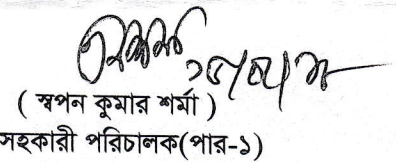 ( স্বপন কুমার শর্মা )
সহকারী পরিচালক(পার-১)